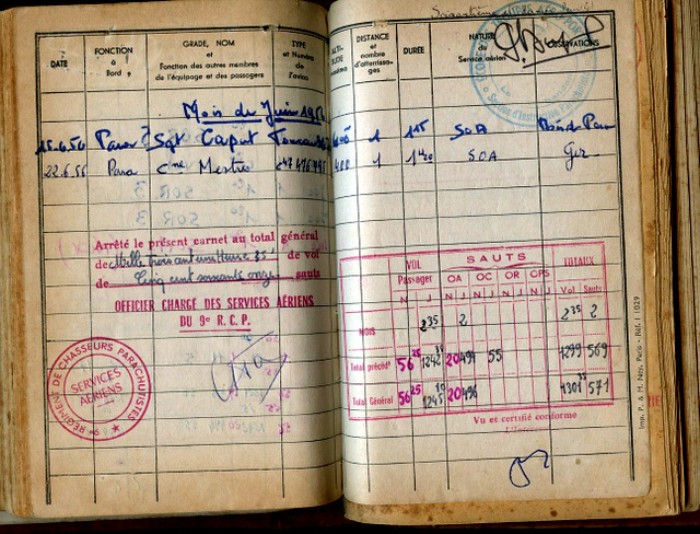 DATE
FONCTION à Bord
GRADE, NOM et Fonction des autres membres de l'équipage et des passagers
TYPE et Numéro de l'avion
DISTANCE et nombre d'atterrissages
DURÉE
NATURE du Service aérien
OBSERVATIONS
Mois de Juin 1956
15.6.56 Para Sgt Caput 1 1 15 SOA
22.6.56 Para Cne Mestre 400 1 1 20 SOA
Arrêté le présent carnet au total général
de Mille trois cent une Heure 35' de vol
de Cinq cent soixante onze sauts
OFFICIER CHARGÉ DES SERVICES AÉRIENS
DU 9e R. C. P.
9e RÉGIMENT DE CHASSEURS PARACHUTISTES
SERVICES AÉRIENS
VOL Passager SAUTS TOTAUX
OA OC OR OPS Vol Sauts
N J N J N J N J N J
MOIS 2 35 2 2 35 2
Total précédt 56 25 1242 20 494 55 1299 569
Total Général 56 25 1245 10 20 496 1301 35 571
Vu et certifié conforme
Imp. P. & M. Ney, Paris - Réf. I 1029